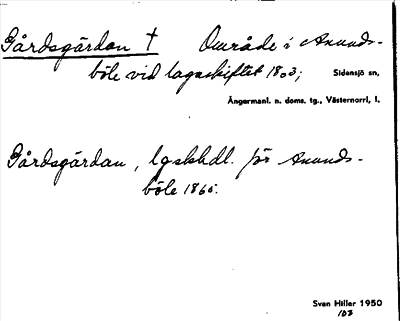 Gårdsgärdan † Område i Anunds-
böle vid lagaskiftet 1803; Sidensjö sn,
Ångermanl. n. doms. tg., Västernorrl, l.
Gårdsgärdan, lgskhdl. för Anunds-
böle 1865.
Sven Hiller 1950
103